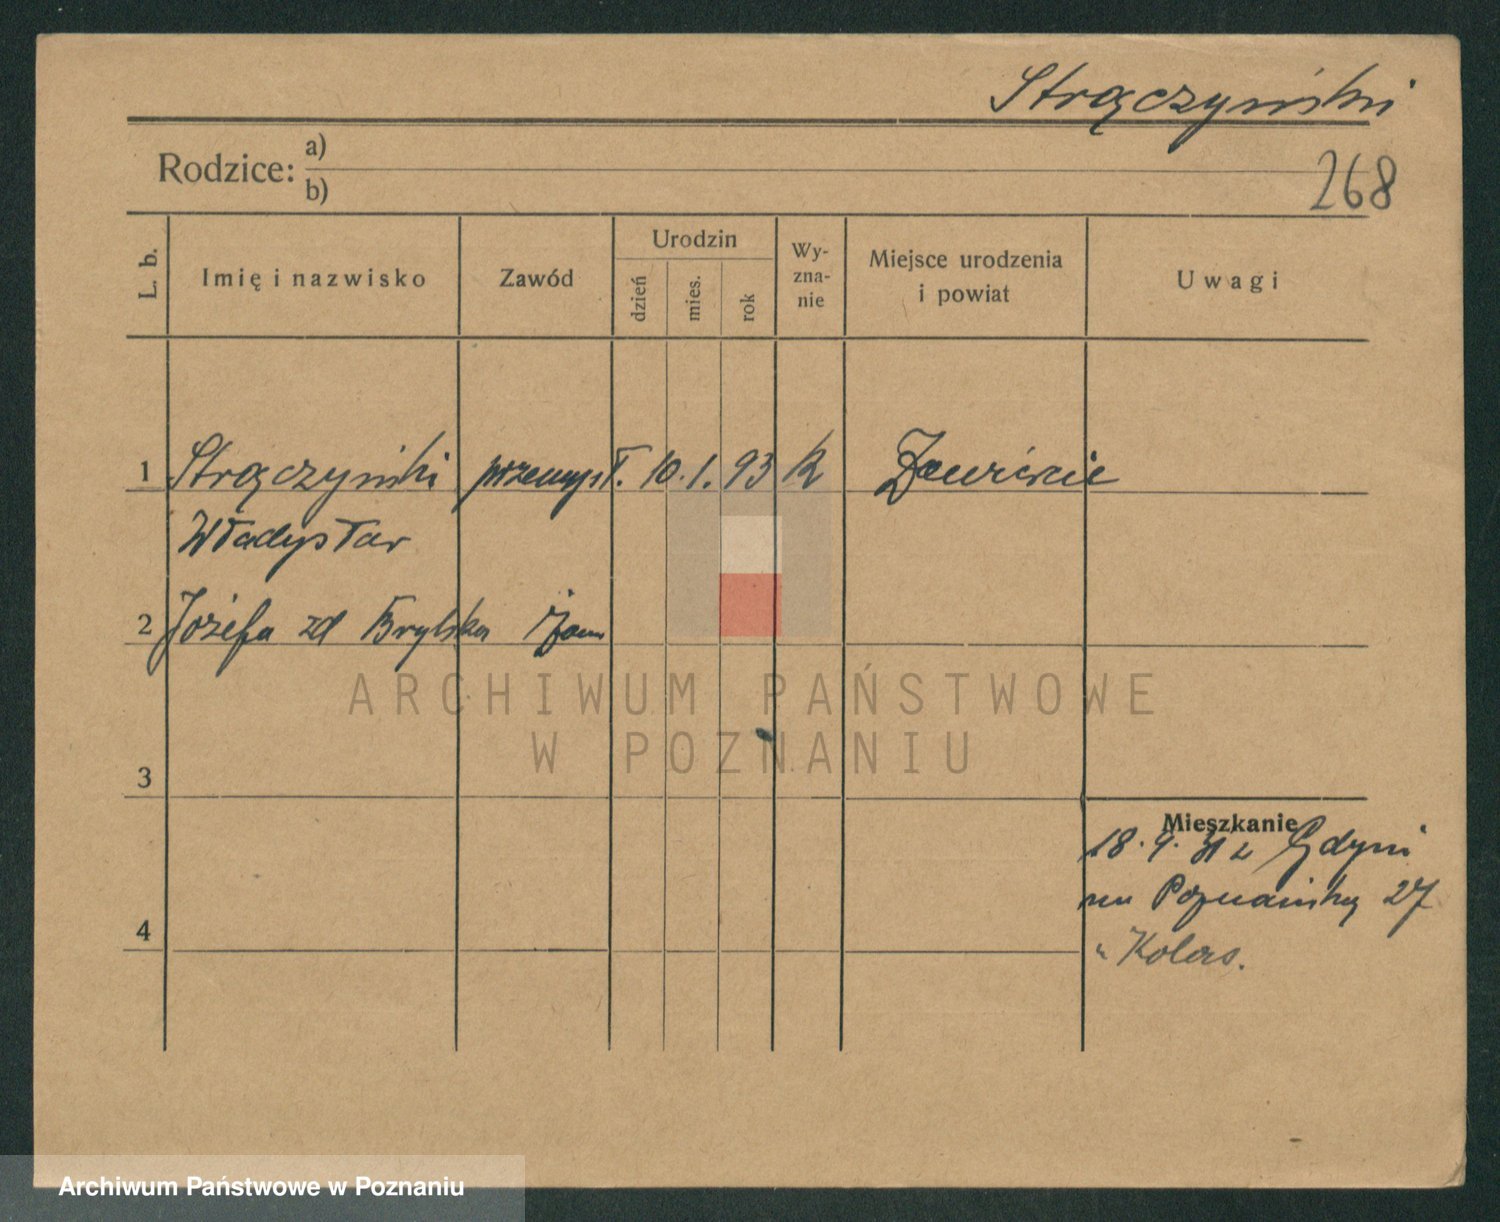 Strączyński
268
Rodzice: a)
b)
L. b.
Imię i nazwisko
Zawód
Urodzin
dzień
mies.
rok
Wy-
zna-
nie
Miejsce urodzenia
i powiat
Uwagi
1 Strączyński przemysł. 10. 1. 93 k
Władysław
2 Józefa zd Brylska żona
3
4
Mieszkanie
18. 9. 31 z Gdyni
na Poznańską 27
u Kolas.
ARCHIWUM PAŃSTWOWE
W POZNANIU
Archiwum Państwowe w Poznaniu